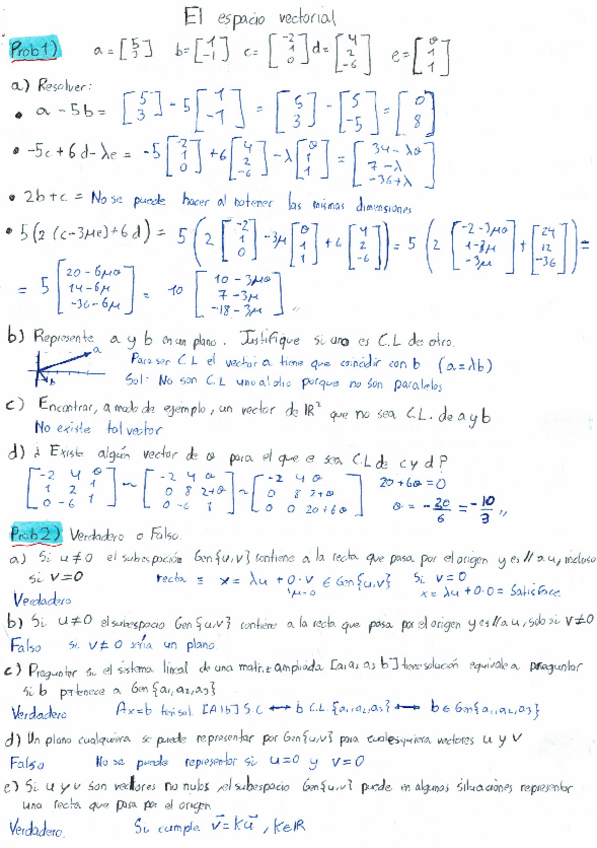 El espacio vectorial
Prob1) a = [5 3] b = [1 -1] c = [-2 1 0] d = [4 2 -6] e = [θ 1 1]
a) Resolver:
• a - 5b = [5 3] - 5[1 -1] = [5 3] - [5 -5] = [0 8]
• -5c + 6d - λe = -5[-2 1 0] + 6[4 2 -6] - λ[θ 1 1] = [34 - λθ 7 - λ -36+λ]
• 2b + c = No se puede hacer al notener las mismas dimensiones
• 5(2(c-3μe)+6d) = 5(2[-2 1 0] - 3μ[θ 1 1] + 6[4 2 -6]) = 5(2[-2-3μθ 1-3μ -3μ] + [24 12 -36]) =
= 5[20-6μθ 14-6μ -36-6μ] = 10[10-3μθ 7-3μ -18-3μ]
b) Represente a y b en un plano. Justifique si uno es C.L de otro.
a
Para ser C.L el vector a tiene que coincidir con b (a=λb)
b
Sol: No son C.L uno al otro porque no son paralelos
c) Encontrar, a modo de ejemplo, un vector de IR² que no sea C.L. de a y b
No existe tal vector
d) ¿ Existe algún vector de θ para el que e sea C.L de c y d?
[-2 4 θ 1 2 1 0 -6 1] ~ [-2 4 θ 0 8 2+θ 0 -6 1] ~ [-2 4 θ 0 8 2+θ 0 0 20+6θ] 20+6θ=0
θ = -20/6 = -10/3
Prob2) Verdadero o Falso.
a) Si u≠0 el subespacion Gen{u,v} contiene a la recta que pasa por el origen y es // a u, incluso
si v=0 recta ≡ x = λu + 0·v ∈ Gen{u,v} Si v=0
μ=0 x = λu+0·0 = Satisface
Verdadero
b) Si u≠0 el subespacio Gen{u,v} contiene a la recta que pasa por el origen y es // a u, solo si v≠0
Falso si v≠0 sería un plano
c) Preguntar si el sistema lineal de una matriz ampliada [a₁ a₂ a₃ b] tiene solución equivale a preguntar
si b pertenece a Gen{a₁,a₂,a₃}
Verdadero Ax=b tiene sol. [A|b] S.C ⟷ b C.L {a₁,a₂,a₃} ⟷ b ∈ Gen{a₁,a₂,a₃}
d) Un plano cualquiera se puede representar por Gen{u,v} para cualesquiera vectores u y v
Falso No se puede representar si u=0 y v=0
e) Si u y v son vectores no nulos, el subespacio Gen{u,v} puede en algunas situaciones representar
una recta que pasa por el origen
Verdadero. Si cumple v⃗=ku⃗, k∈IR